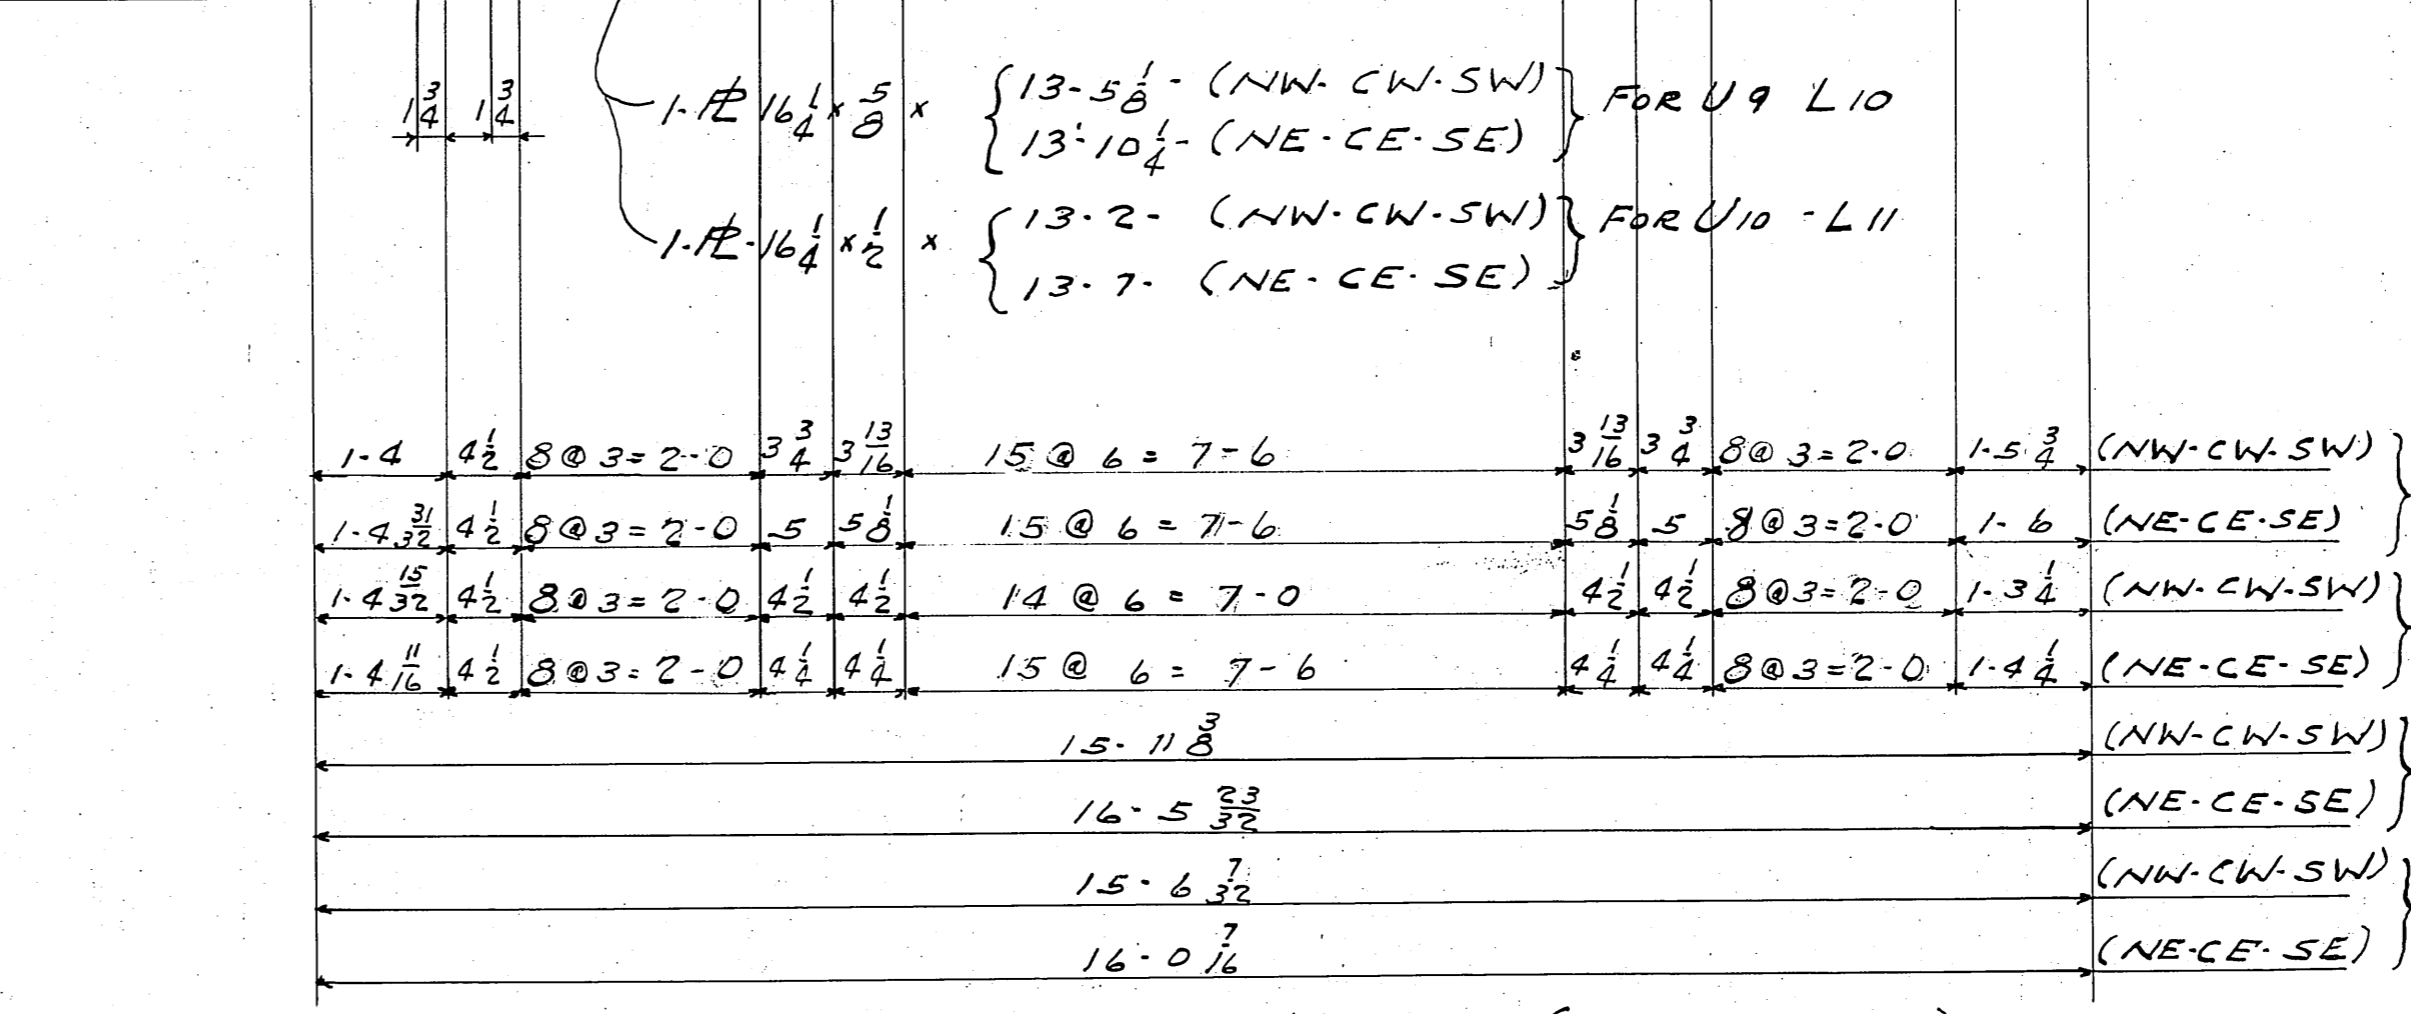 1 3/4 1 3/4
1-PL 16 1/4 x 5/8 x { 13-5 1/8 - (NW- CW-SW) } FOR U9 L10
{ 13-10 1/4 - (NE-CE-SE) }
1-PL-16 1/4 x 1/2 x { 13-2- (NW-CW-SW) } FOR U10 - L11
{ 13-7- (NE-CE-SE) }
1-4 4 1/2 8@3=2-0 3 3/4 3 13/16 15 @ 6 = 7-6 3 13/16 3 3/4 8@3=2-0 1-5 3/4 (NW-CW-SW)
1-4 31/32 4 1/2 8@3=2-0 5 5 1/8 15 @ 6 = 7-6 5 1/8 5 8@3=2-0 1-6 (NE-CE-SE)
1-4 15/32 4 1/2 8@3=2-0 4 1/2 4 1/2 14 @ 6 = 7-0 4 1/2 4 1/2 8@3=2-0 1-3 1/4 (NW-CW-SW)
1-4 11/16 4 1/2 8@3=2-0 4 1/4 4 1/4 15 @ 6 = 7-6 4 1/4 4 1/4 8@3=2-0 1-4 1/4 (NE-CE-SE)
15-11 3/8 (NW-CW-SW)
16-5 23/32 (NE-CE-SE)
15-6 7/32 (NW-CW-SW)
16-0 7/16 (NE-CE-SE)